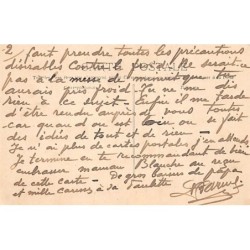 2 faut prendre toutes les précautions
désirables contre le froid. Ne serait ce
pas à la messe de minuit que tu
aurais pris froid Tu ne me dis
rien à ce sujet. Enfin il me tarde
d'être rendu auprès de vous tous
car quand on est loin on se fait
des idées de tout et de rien -
Je n'ai plus de cartes postales, j'en attends
Je termine en te recommandant de bien
embrasser maman Blanche au reçu
de cette carte - De gros baisers de papa
et mille caresses à sa Paulette